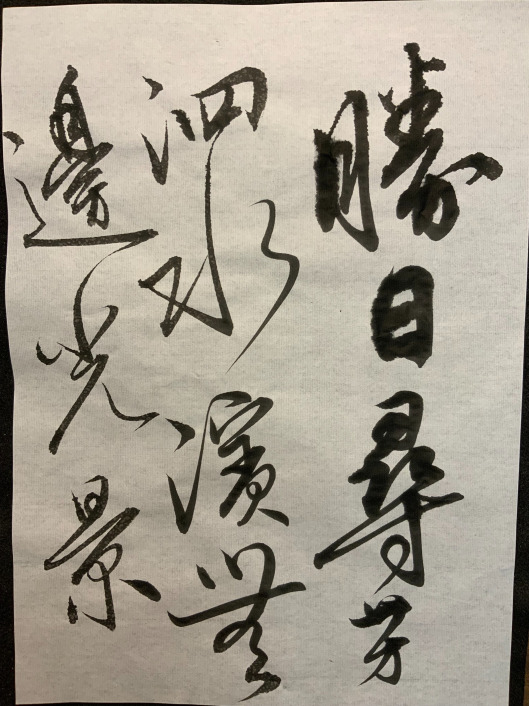 勝日尋芳
泗水濱無
邊光景